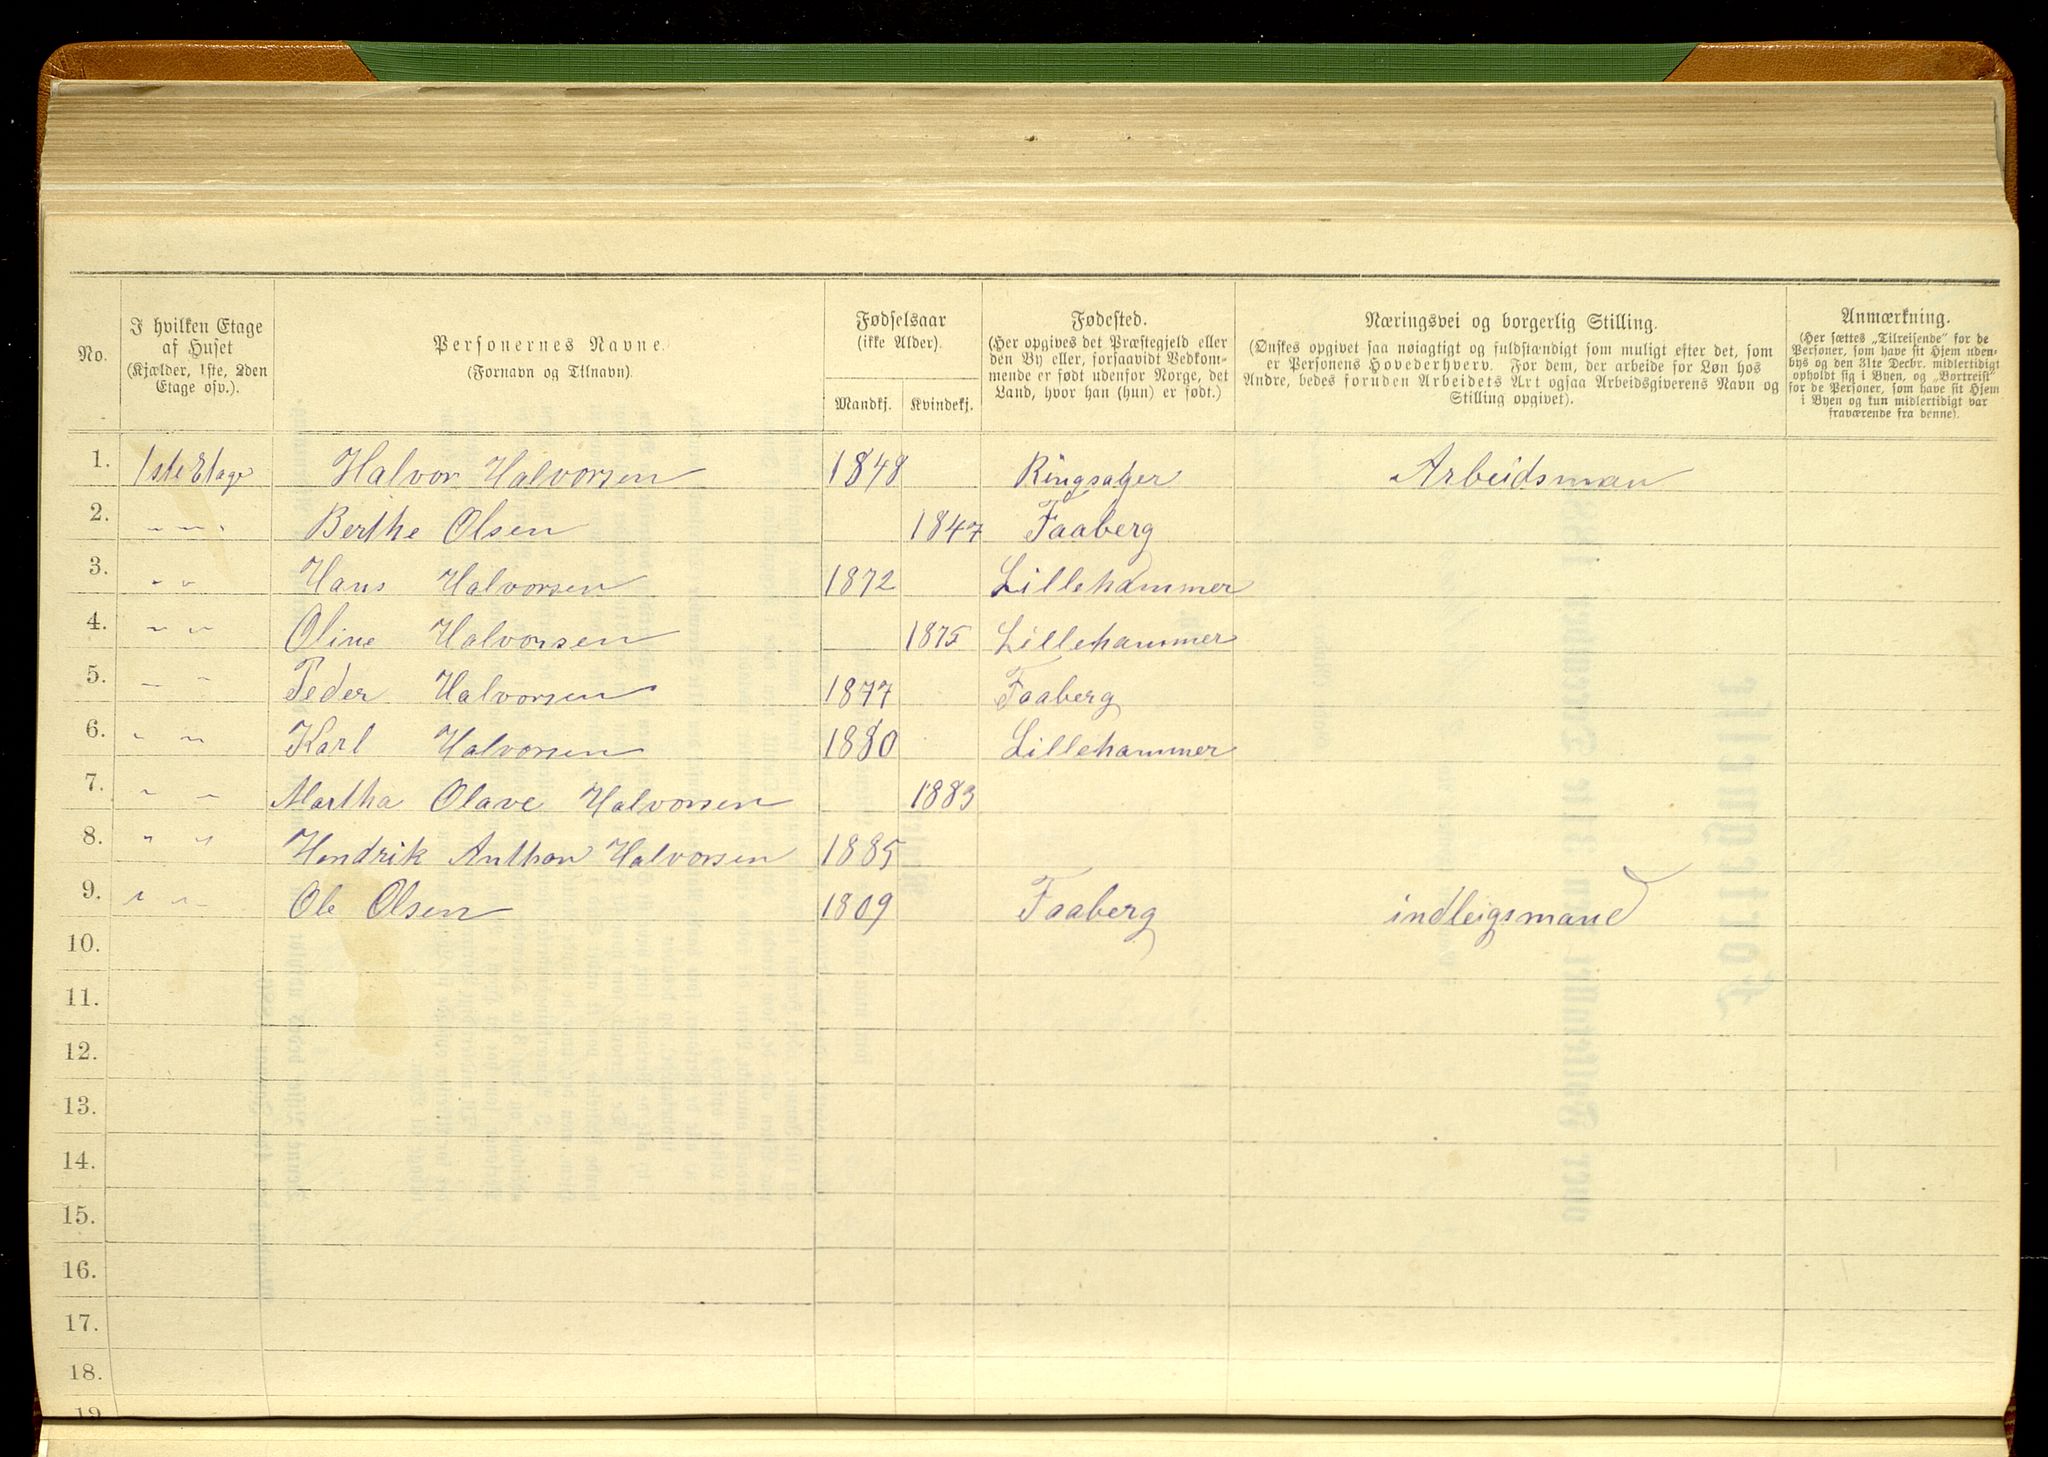 No.
I hvilken Etage
af Huset
(Kjælder, 1ste, 2den
Etage osv.).
Personernes Navne.
(Fornavn og Tilnavn).
Fødselsaar
(ikke Alder).
Mandkj.
Kvindekj.
Fødested.
(Her opgives det Præstegjeld eller
den By eller, forsaavidt Vedkom-
mende er født udenfor Norge, det
Land, hvor han (hun) er født.)
Næringsvei og borgerlig Stilling.
(Ønskes opgivet saa nøiagtigt og fuldstændigt som muligt efter det, som
er Personens Hovederhverv. For dem, der arbeide for Løn hos
Andre, bedes foruden Arbeidets Art ogsaa Arbeidsgiverens Navn og
Stilling opgivet).
Anmærkning.
(Her sættes „Tilreisende" for de
Personer, som have sit Hjem uden-
bys og den 31te Decbr. midlertidigt
opholdt sig i Byen, og „Bortreist"
for de Personer, som have sit Hjem
i Byen og kun midlertidigt var
fraværende fra denne).
1. 1ste Etage Halvor Halvorsen 1848 Ringsager Arbeidsman
2. " " Berthe Olsen 1847 Faaberg
3. " " Hans Halvorsen 1872 Lillehammer
4. " " Oline Halvorsen 1875 Lillehammer
5. " " Peder Halvorsen 1877 Faaberg
6. " " Karl Halvorsen 1880 Lillehammer
7. " " Martha Olave Halvorsen 1883
8. " " Hendrik Anthon Halvorsen 1885
9. " " Ole Olsen 1809 Faaberg indleigsmand
10.
11.
12.
13.
14.
15.
16.
17.
18.
19